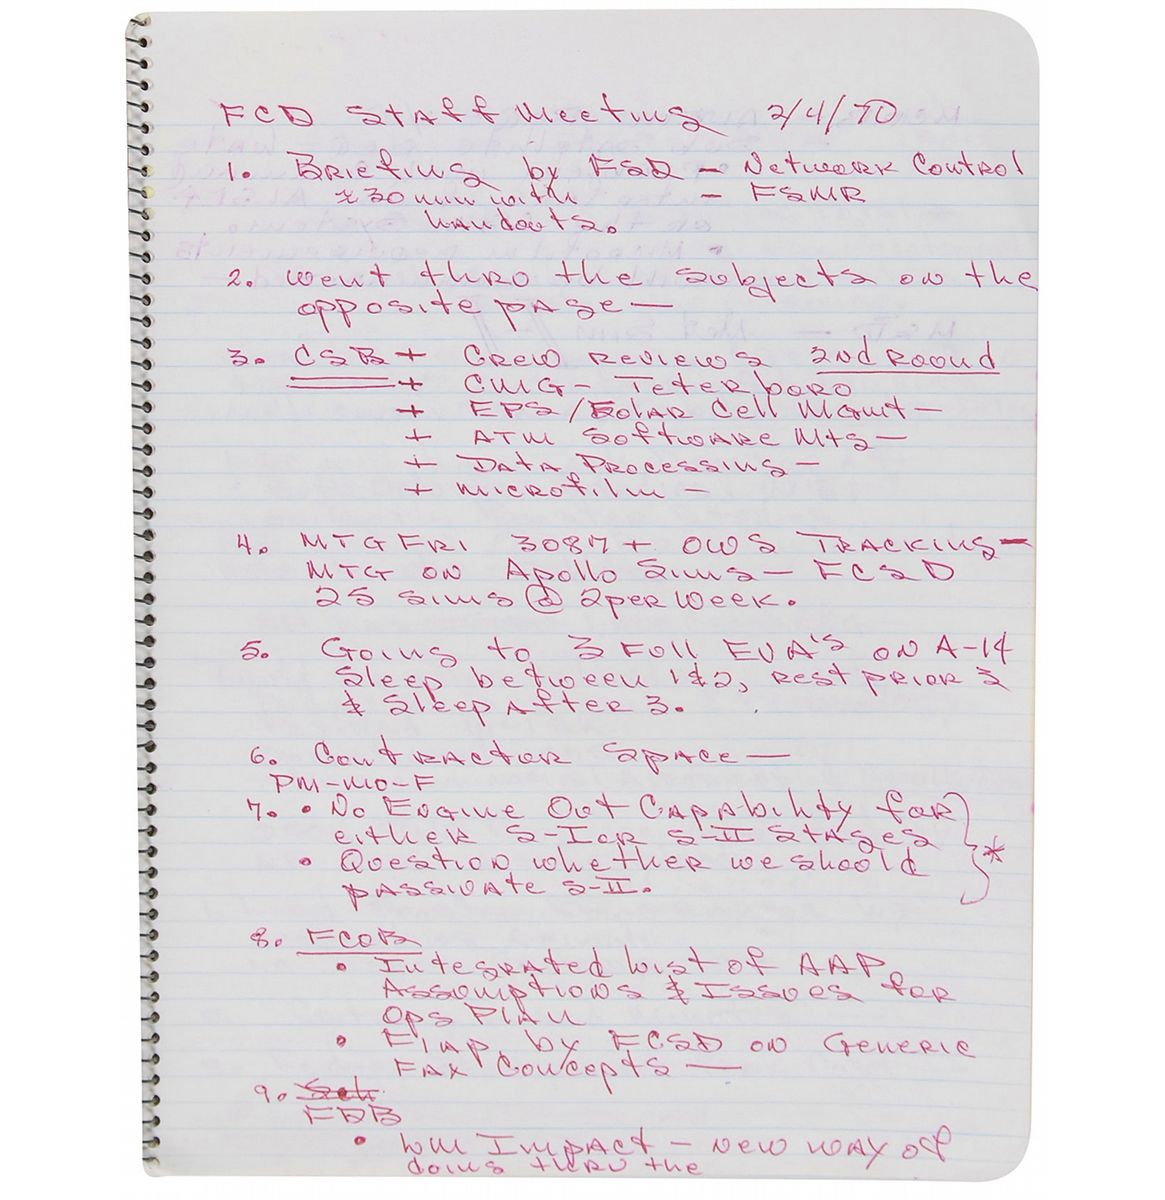 FCD Staff Meeting 2/4/70
1. Briefing by FSD - Network Control
≈30 min with - FSMR
handouts.
2. Went thro the subjects on the
opposite page —
3. CSB + Crew reviews 2nd Round
+ CMG - Teterboro
+ EPS/Solar Cell Mgmt -
+ ATM Software Mtg -
+ Data Processing -
+ microfilm -
4. MTG FRI 3087 + OWS Tracking -
MTG on Apollo Sims - FCSD
25 sims @ 2 per week.
5. Going to 3 Full EVA's on A-14
Sleep between 1&2, rest prior 3
& Sleep After 3.
6. Contractor Space —
PM-MO-F
7. • No Engine Out Capability for
either S-I or S-II Stages
• Question whether we should } *
passivate S-II.
8. FCOB
• Integrated List of AAP
Assumptions & Issues for
Ops Plan
• Flap by FCSD on Generic
Fax Concepts —
9. FDB
• LM Impact - New way of
doing thru the